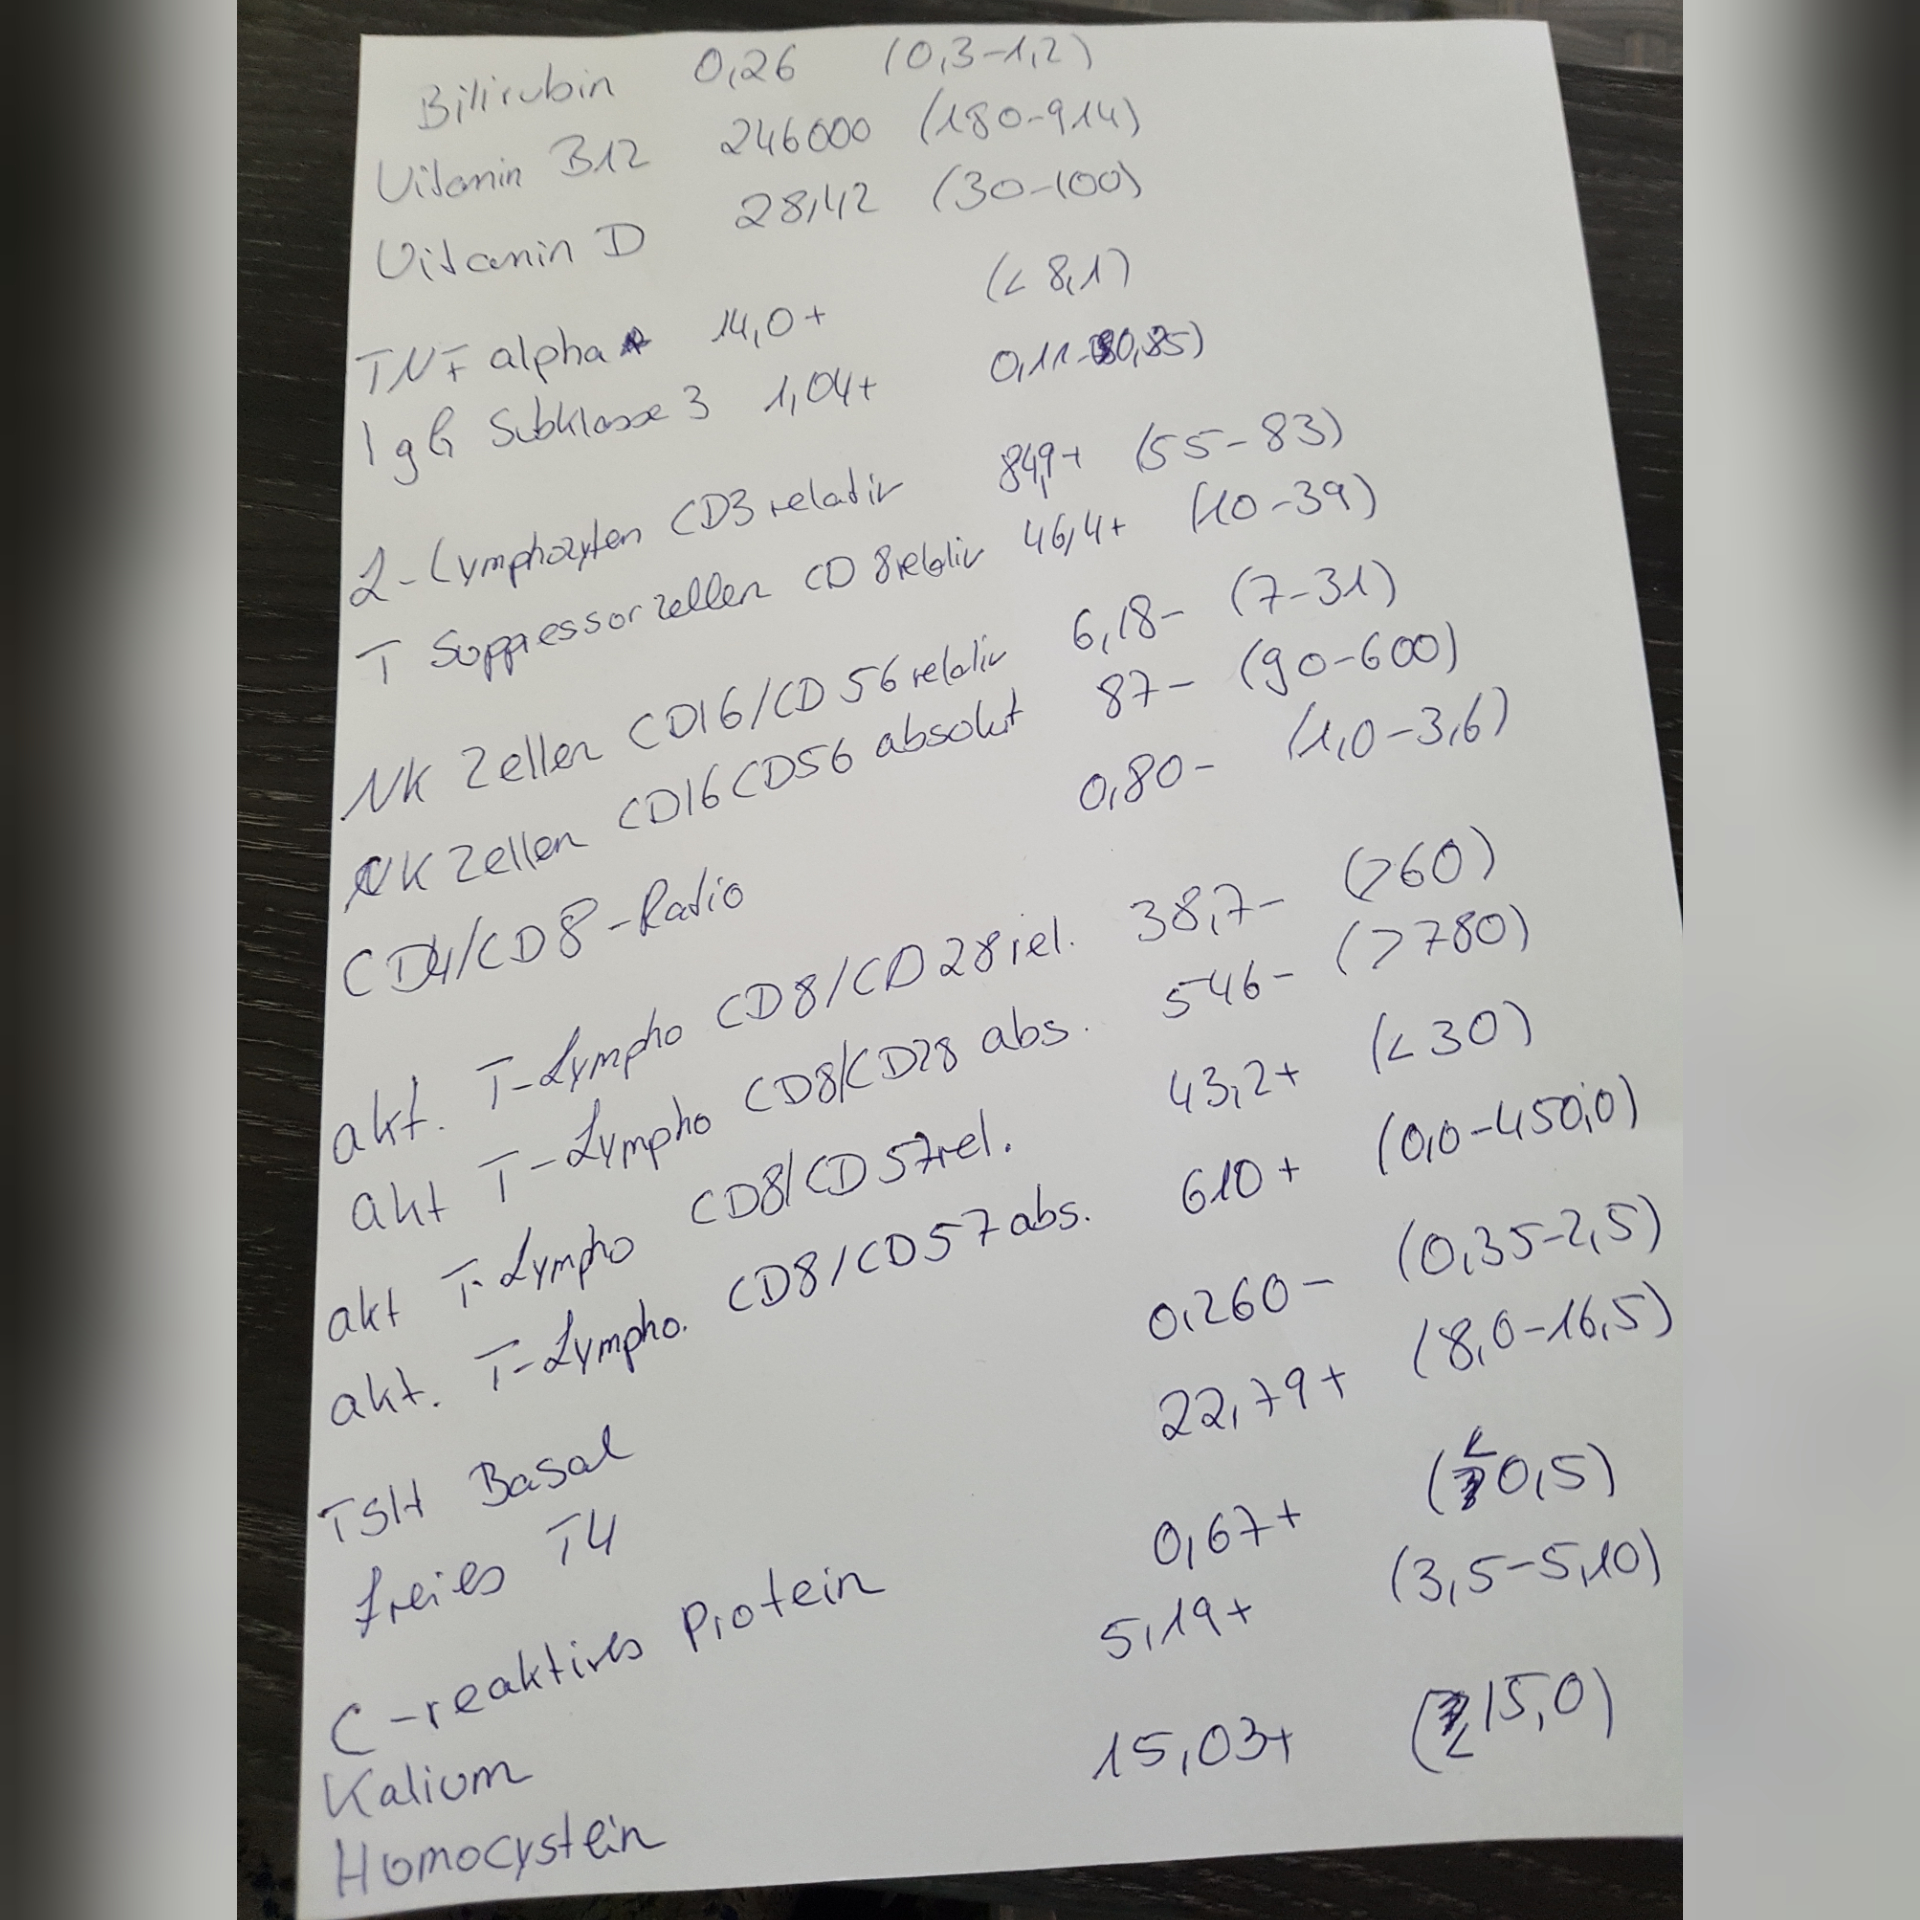 Bilirubin 0,26 (0,3-1,2)
Vitamin B12 246000 (180-914)
Vitamin D 28,42 (30-100)
TNF alpha 14,0+ (<8,1)
IgG Subklasse 3 1,04+ 0,11-0,85)
L-Lymphozyten CD3 relativ 84,9+ (55-83)
T Suppressorzellen CD8 relativ 46,4+ (10-39)
NK Zellen CD16/CD56 relativ 6,18- (7-31)
NK Zellen CD16CD56 absolut 87- (90-600)
CD4/CD8-Ratio 0,80- (1,0-3,6)
akt. T-Lympho CD8/CD28 rel. 38,7- (>60)
akt T-Lympho CD8/CD28 abs. 546- (>780)
akt T-Lympho CD8/CD57 rel. 43,2+ (<30)
akt. T-Lympho. CD8/CD57 abs. 610+ (0,0-450,0)
TSH Basal 0,260- (0,35-2,5)
freies T4 22,79+ (8,0-16,5)
C-reaktives Protein 0,67+ (<0,5)
Kalium 5,19+ (3,5-5,10)
Homocystein 15,03+ (<15,0)